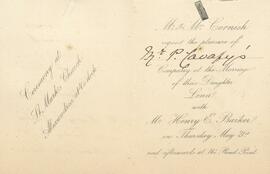 Ceremony at
St. Mark's Church
Alexandria at o'clock
Mr. & Mrs. Cornish
request the pleasure of
Mr. P. Cavafy's
Company at the Marriage
of their Daughter
Lena
with
Mr. Henry E. Barker
on Thursday May
and afterwards at the